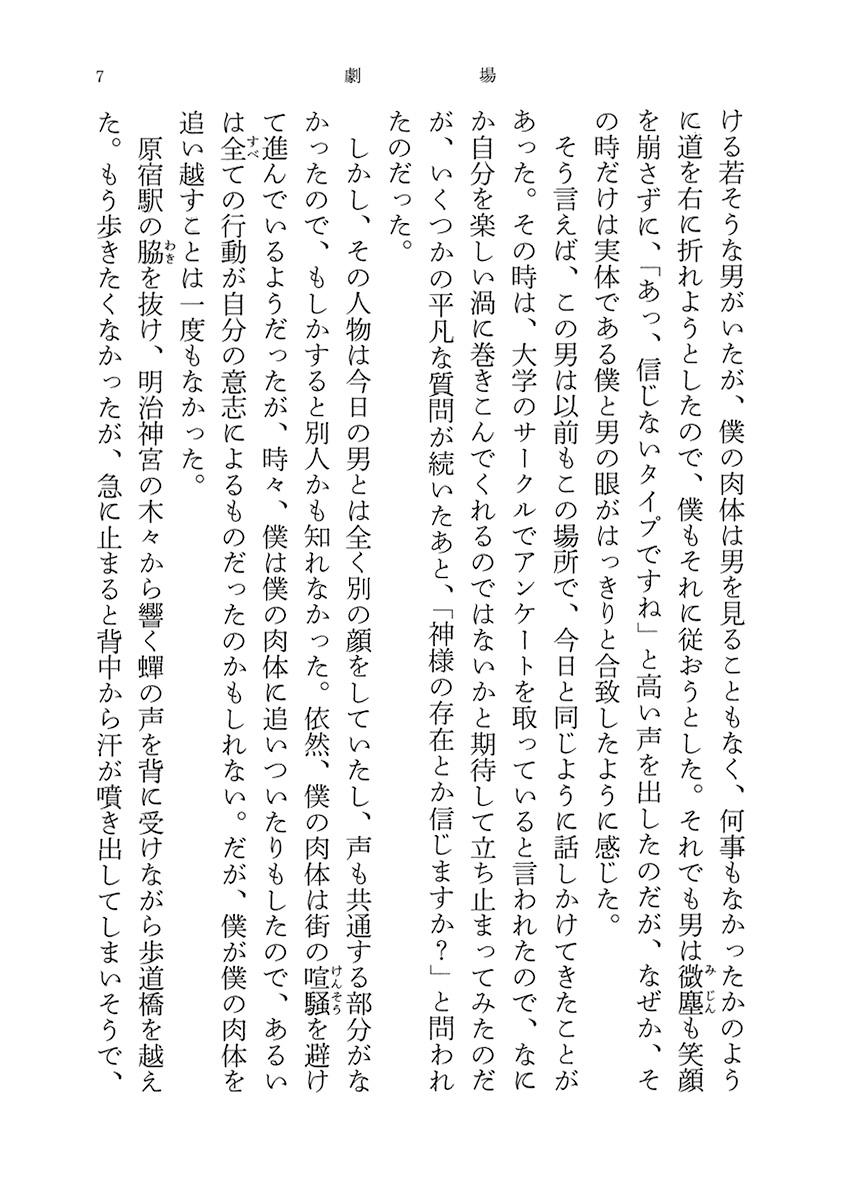 7
劇場
ける若そうな男がいたが、僕の肉体は男を見ることもなく、何事もなかったかのよう
に道を右に折れようとしたので、僕もそれに従おうとした。それでも男は微塵も笑顔
みじん
を崩さずに、「あっ、信じないタイプですね」と高い声を出したのだが、なぜか、そ
の時だけは実体である僕と男の眼がはっきりと合致したように感じた。
そう言えば、この男は以前もこの場所で、今日と同じように話しかけてきたことが
あった。その時は、大学のサークルでアンケートを取っていると言われたので、なに
か自分を楽しい渦に巻きこんでくれるのではないかと期待して立ち止まってみたのだ
が、いくつかの平凡な質問が続いたあと、「神様の存在とか信じますか？」と問われ
たのだった。
しかし、その人物は今日の男とは全く別の顔をしていたし、声も共通する部分がな
かったので、もしかすると別人かも知れなかった。依然、僕の肉体は街の喧騒を避け
けんそう
て進んでいるようだったが、時々、僕は僕の肉体に追いついたりもしたので、あるい
は全ての行動が自分の意志によるものだったのかもしれない。だが、僕が僕の肉体を
すべ
追い越すことは一度もなかった。
原宿駅の脇を抜け、明治神宮の木々から響く蟬の声を背に受けながら歩道橋を越え
わき
た。もう歩きたくなかったが、急に止まると背中から汗が噴き出してしまいそうで、